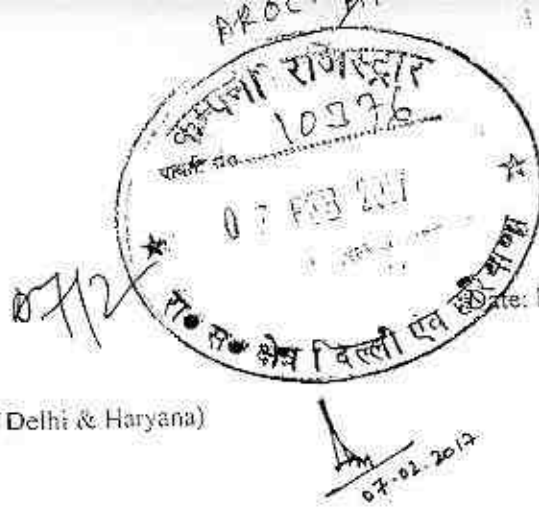 AROC
कम्पनी रजिस्ट्रार
10376
07 FEB 2017
07/2
रा० स० क्षेत्र दिल्ली एवं हरियाणा
Date:
Delhi & Haryana)
07.02.2017